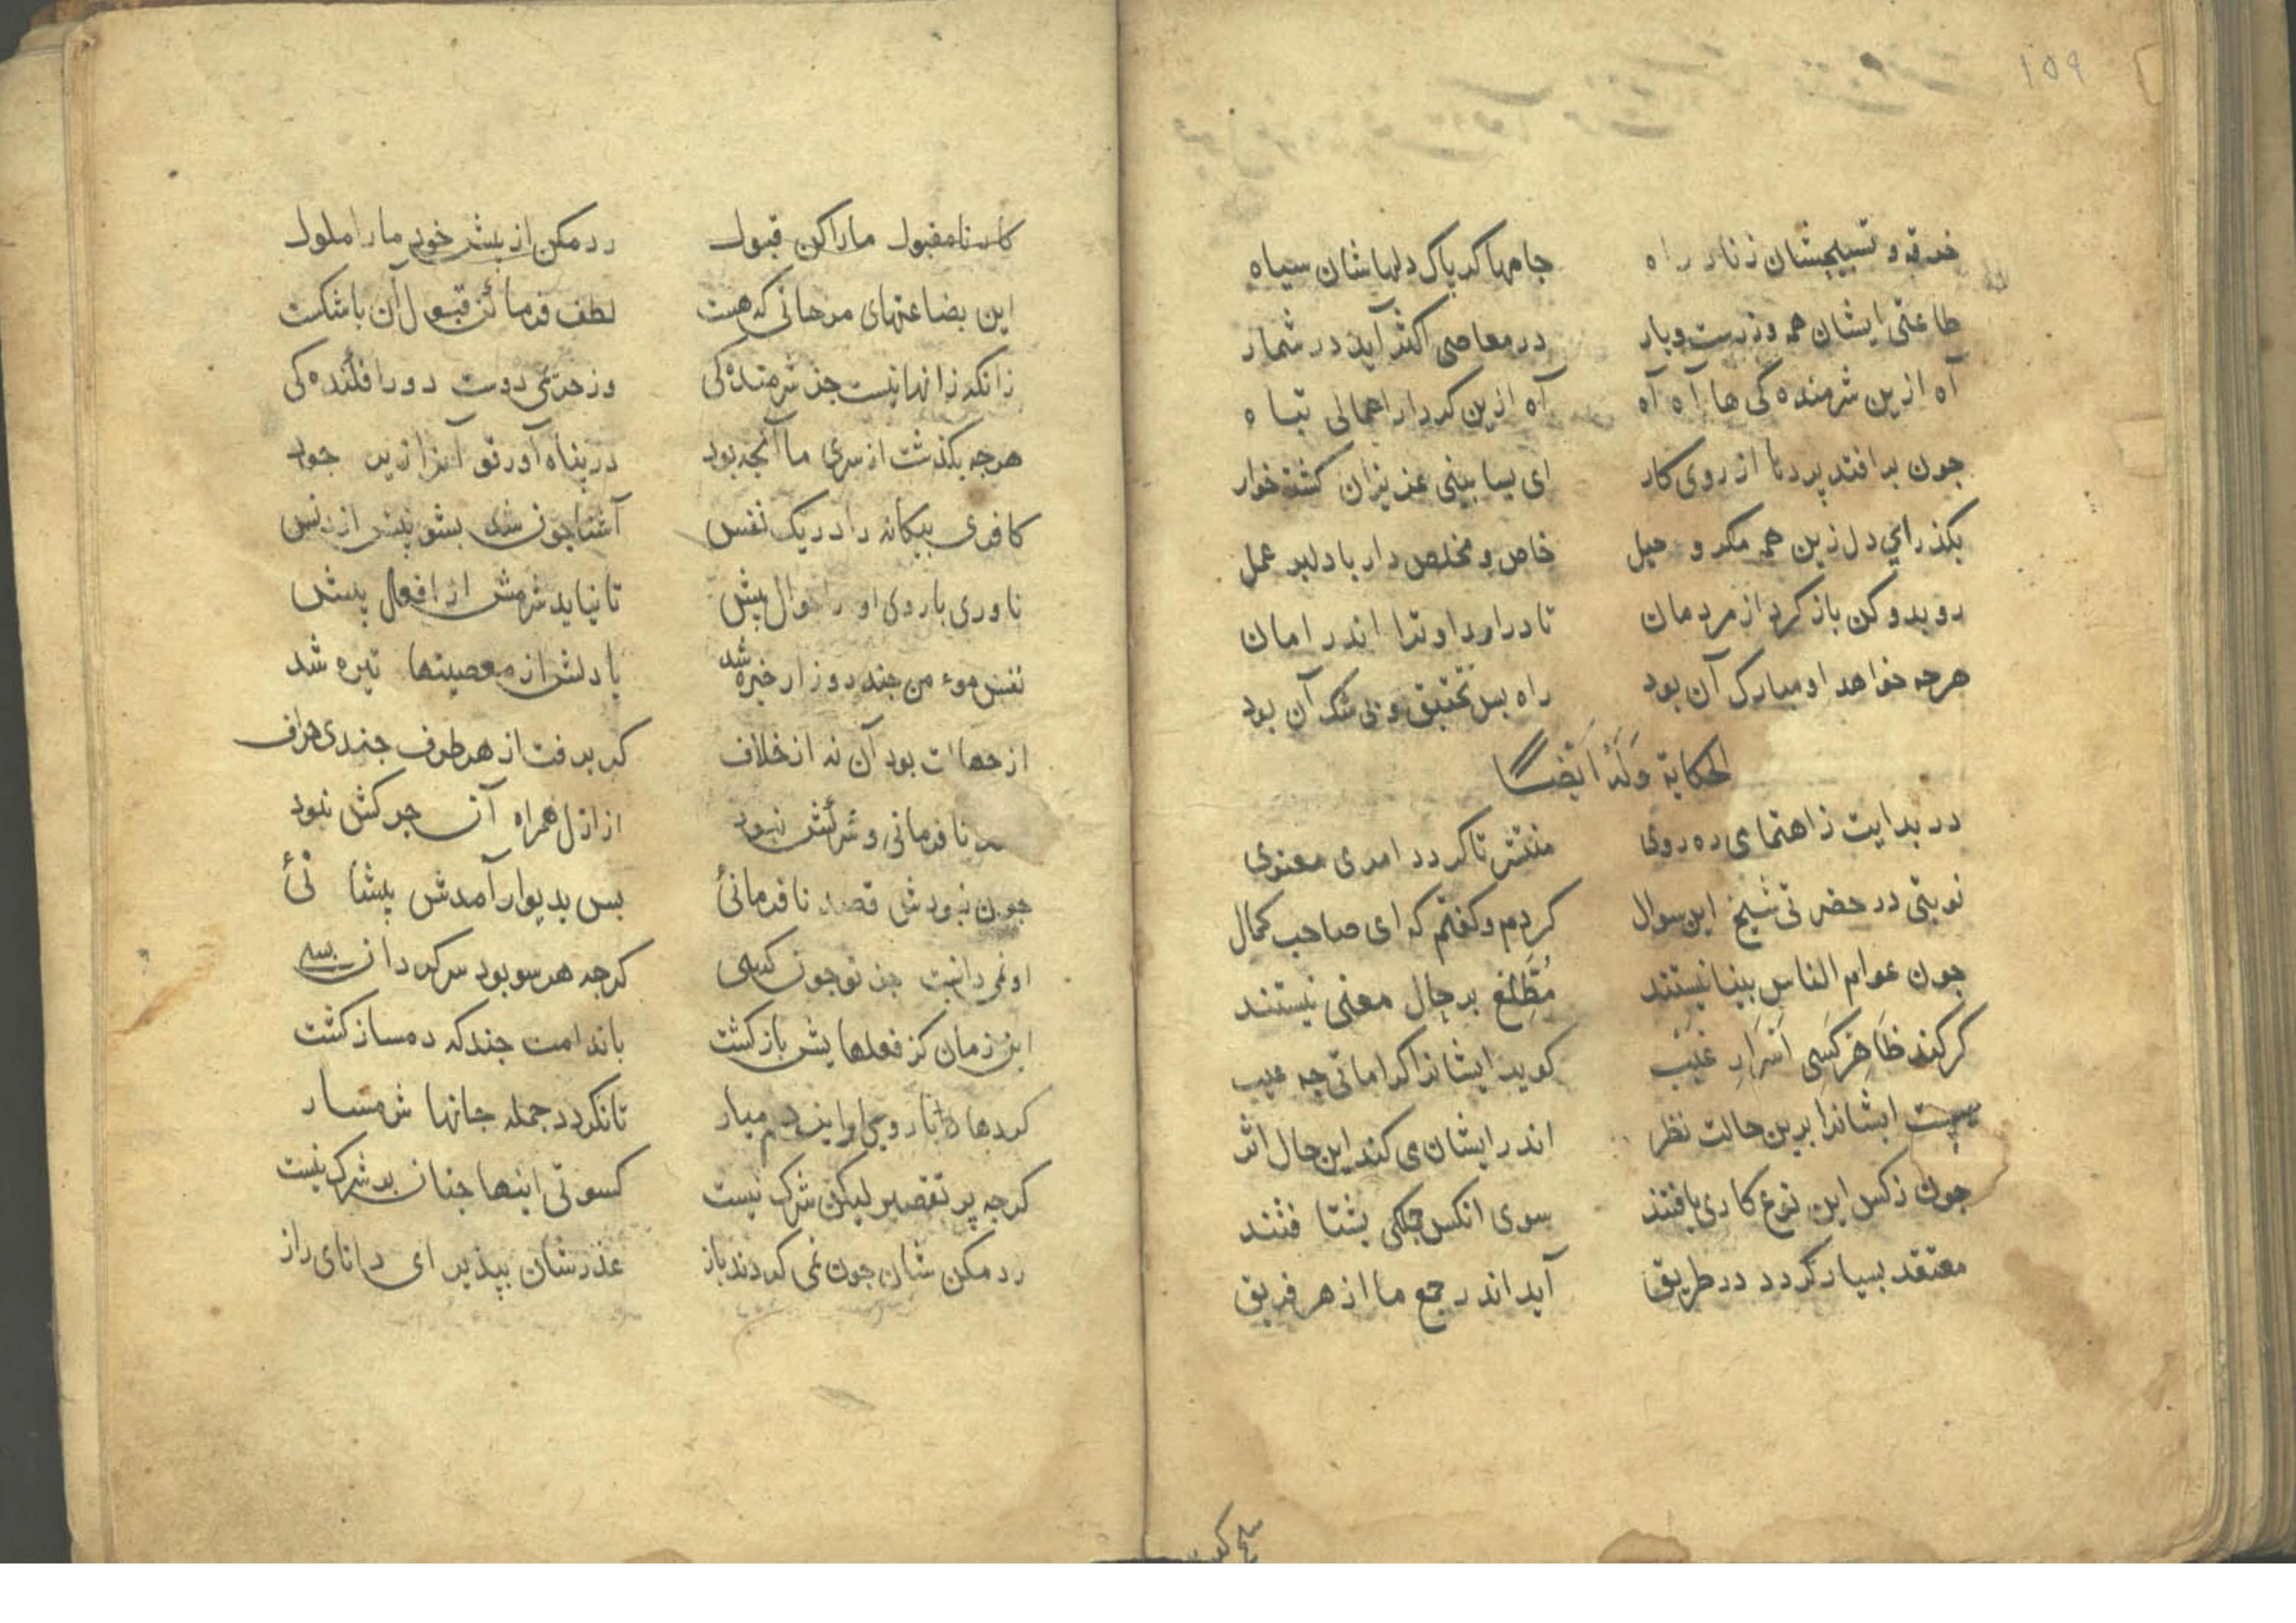 ١٥٩
خرقه و تسبیحشان زنار راه جامها کر پاک دلهاشان سیاه
طاعتی ایشان همه وزرست وبار در معاصی اکثر آید در شمار
آه ازین شرمنده کی ها آه آه آه ازین کردار اعمالی تباه
جون بر افتد پردنا از روی کار ای بسا بینی عزیزان کشته خوار
بکذر ای دل زین همه مکر و حیل خاص و مخلص دار با دلبر عمل
رو بدو کن باز کرد از مردمان تا درارد او ترا اندر امان
هرجه خواهد او مبارک آن بود راه بس تحقیق و بی شک آن بود
الحکایة وَلَهُ اَیْضاً
در بدایت زاهتمای ره روی منتشر تا کردد امری معنوی
نوبتی در حضرتی شیخ این سوال کردم و کفتم که ای صاحب کمال
جون عوام الناس بینا نیستند مُطَّلِع بر حال معنی نیستند
کر کند ظَاهِر کَسی اَسْرَارِ غَیْب کوید ایشانرا کراماتی جه عیب
نیست ایشانرا برین حالت نظر اندر ایشان می کند این حال اثر
جون زکس این نوع کاری یافتند سوی انکس جمکی بشتافتند
معتقد بسیار کردد در طریق آید اندر جمع ما از هر فریق
کار نامقبول مارا کن قبول رد مکن از پیش خود مارا ملول
این بضاعتهای مزجاتی که هست لطف فرما کن قبول آن با شکست
زانکه زانها نیست جز شرمنده کی وز حریمی دوست دور افکنده کی
هرجه بکذشت از سری ما آنجه بود در پناه آور تو آنرا زیر جود
کافری بیکانه را در یک نفس آشنا جون شد بشو پیش از نفس
ناوری با روی او احوال پیش تا نیاید شرمش از افعال پیش
نفس موءمن جند روز ار خیره شد یا دلش از معصیتها تیره شد
از جهات بود آن نه از خلاف کر برفت از هر طرف جندی جزاف
نافرمانی و شرکش نبود از ازل همراه آن جرکش نبود
جون نبودش قصد نافرمانئ بس بدیوار آمدش پیشانئ
او نمی دانست جز تو جون کسی کرجه هر سو بود سرکردان بسی
این زمان کز فعلهایش باز کشت با ندامت جندکه دمساز کشت
کردها را با روی او این دم میار تا نکردد جمله جانها شرمسار
کرجه پر تقصیر لیکن شرک نیست کسوتی اینها جنان بر شرک نیست
رد مکن شان جون نمی کردند باز عذرشان بپذیر ای دانای راز